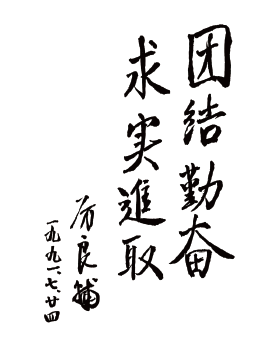 团结勤奋
求实進取
厉良辅
一九九一、七、廿四